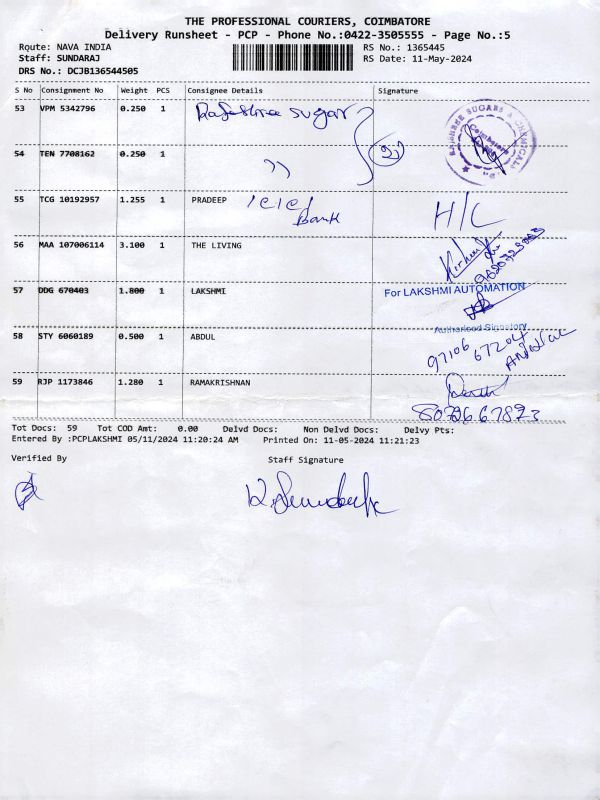 THE PROFESSIONAL COURIERS, COIMBATORE
Delivery Runsheet - PCP - Phone No.:0422-3505555 - Page No.:5
Route: NAVA INDIA
RS No.: 1365445
Staff: SUNDARAJ
RS Date: 11-May-2024
DRS No.: DCJB136544505
S No Consignment No Weight PCS Consignee Details Signature
53 VPM 5342796 0.250 1 Rajshree Sugar
RAJSHREE SUGARS & CHEMICALS
Coimbatore
54 TEN 7708162 0.250 1 )) 2)
55 TCG 10192957 1.255 1 PRADEEP ICICI Bank H/C
56 MAA 107006114 3.100 1 THE LIVING
57 DDG 670403 1.800 1 LAKSHMI
For LAKSHMI AUTOMATION
Authorised Signatory
58 STY 6060189 0.500 1 ABDUL 97106 67204
59 RJP 1173846 1.280 1 RAMAKRISHNAN
Tot Docs: 59 Tot COD Amt: 0.00 Delvd Docs: Non Delvd Docs: Delvy Pts:
Entered By :PCPLAKSHMI 05/11/2024 11:20:24 AM Printed On: 11-05-2024 11:21:23
Verified By Staff Signature